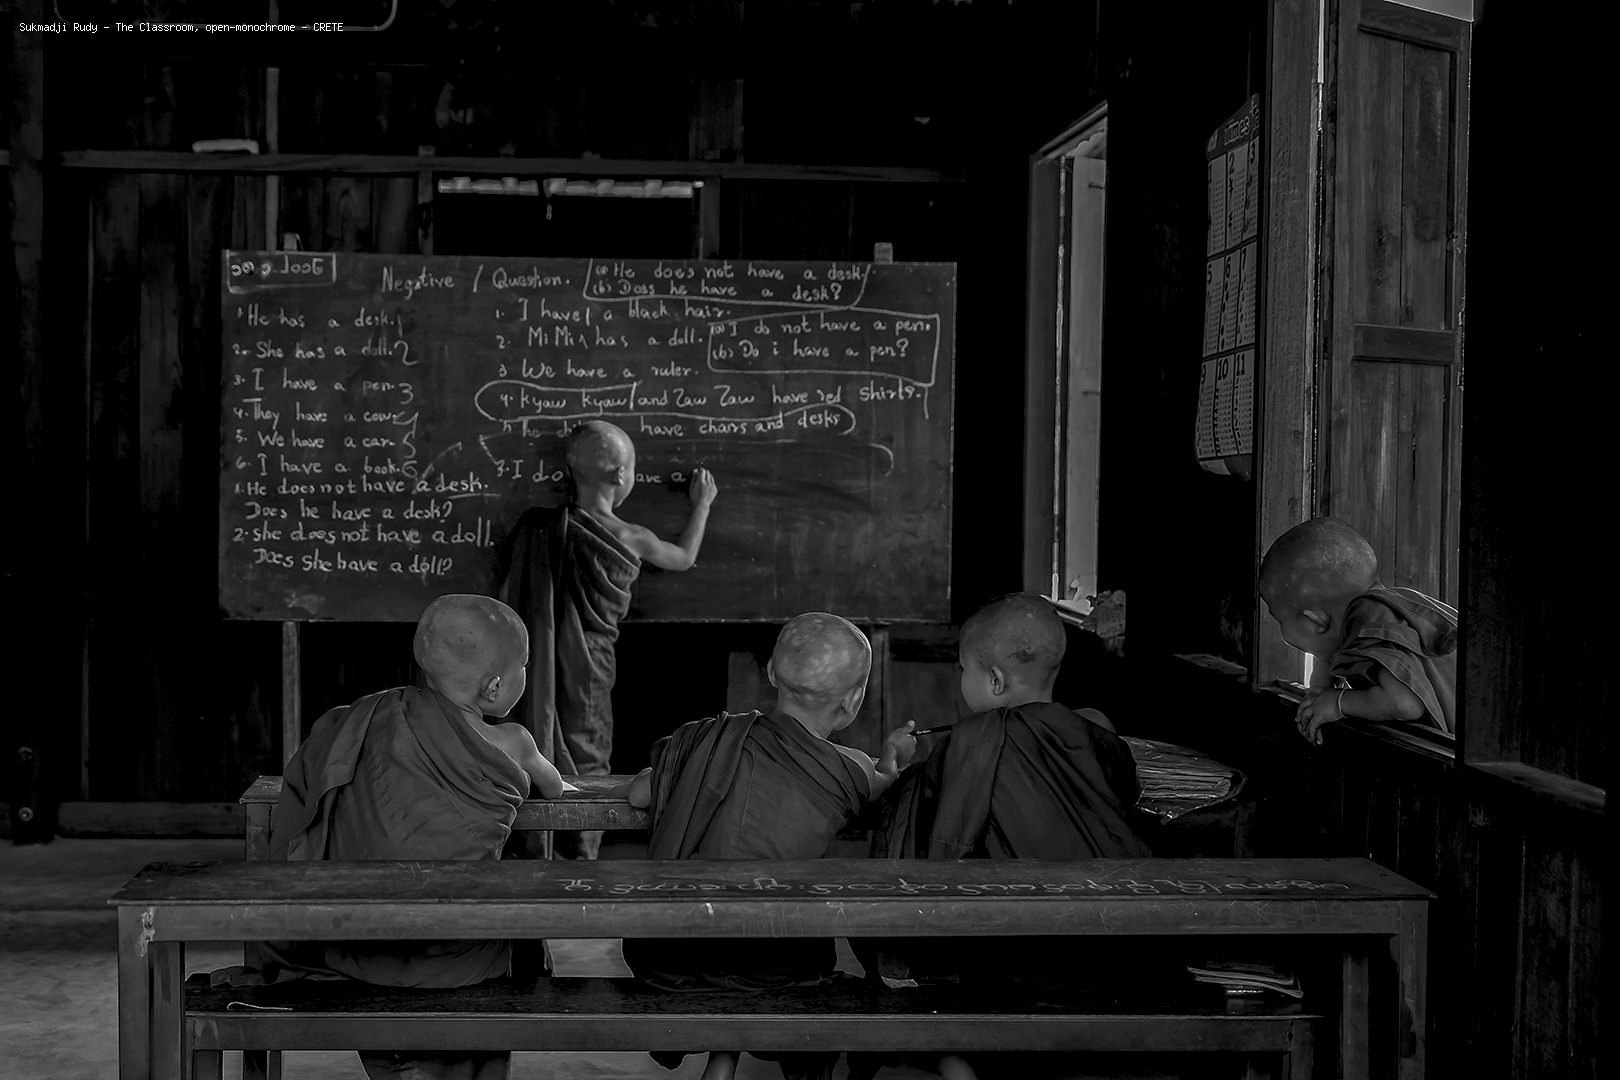 Sukmadji Rudy - The Classroom, open-monochrome - CRETE
Negative / Question.
(a) He does not have a desk.
(b) Does he have a desk?
1. He has a desk. 1
2. She has a doll. 2
3. I have a pen. 3
4. They have a cow. 4
5. We have a car. 5
6. I have a book. 6
1. He does not have a desk.
Does he have a desk?
2. she does not have a doll.
Does she have a doll?
1. I have / a black hair.
2. Mi Mi has a doll.
3 We have a ruler.
4. Kyaw Kyaw / and Zaw Zaw have red shirts.
have chairs and desks
(a) I do not have a pen.
(b) Do i have a pen?
3. I do ave a
2 3
5 6 7
9 10 11